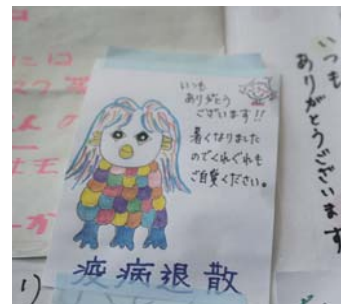 いつも
ありがとう
ございます!!
暑くなりました
のでくれぐれも
ご自愛ください。
疫病退散
いつも
ありがとうございます